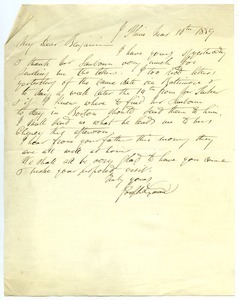 Phila Mar 18th 1859
My Dear Benjamin
I have yours of yesterday
& thank Mr Sanborn very much for
sending me the letters. I too had letters
yesterday of the same date via Baltimore &
to day a week later the 14th from
& if I knew where to find Mr Sanborn
to day in Boston should send them to him
I shall send us what he sends me to
this afternoon
I hear from your father this morning they
are all well at home
We shall all be very glad to have you come
& make your proposed visit.
Truly yours